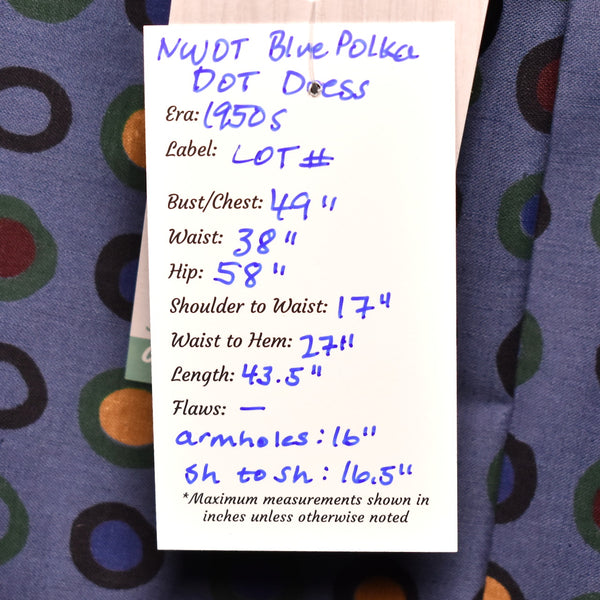 NWOT Blue Polka
DOT Dress
Era: 1950s
Label: LOT #
Bust/Chest: 49"
Waist: 38"
Hip: 58"
Shoulder to Waist: 17"
Waist to Hem: 27"
Length: 43.5"
Flaws: —
armholes: 16"
sh to sh: 16.5"
*Maximum measurements shown in
inches unless otherwise noted